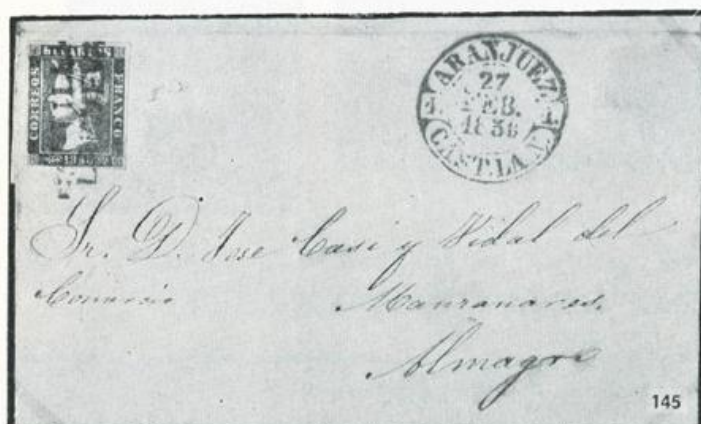 CORREOS
FRANCO
ARANJUEZ.
27
FEB.
CAST. LA N.
Sr. D. Jose Casi y Vidal del
Comercio Manzanares.
Almagro
145